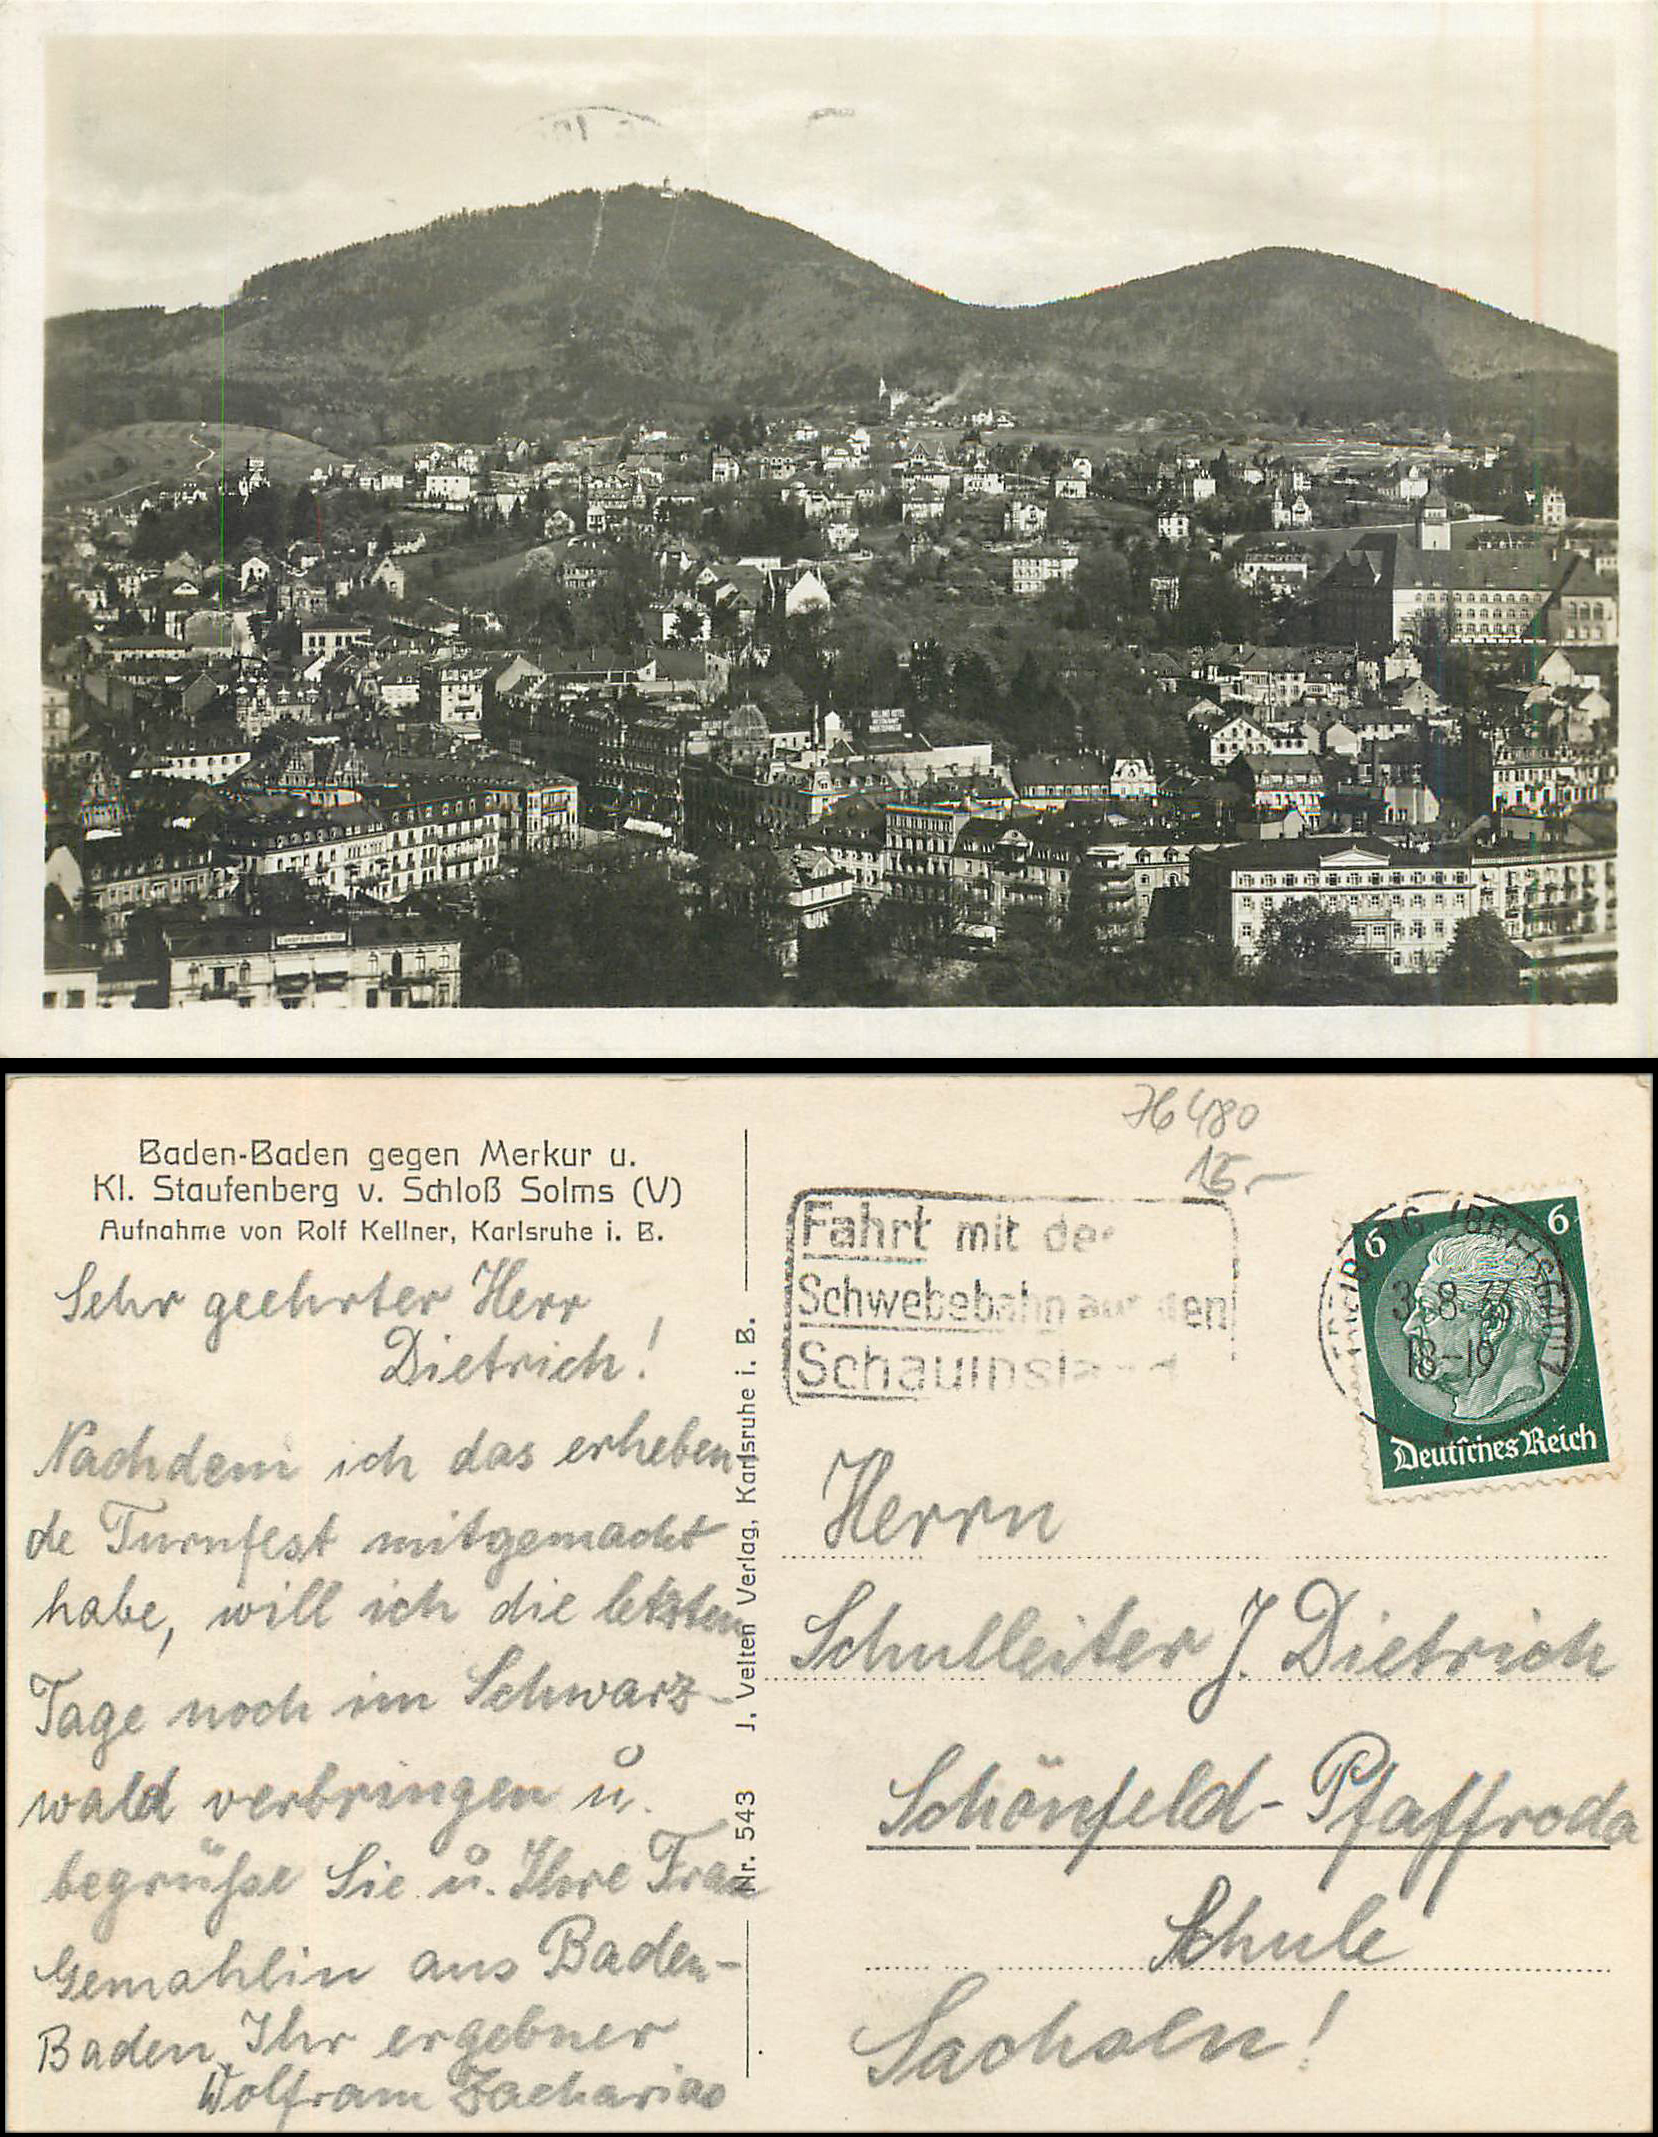 Baden-Baden gegen Merkur u.
Kl. Staufenberg v. Schloß Solms (V)
Aufnahme von Rolf Kellner, Karlsruhe i. B.
Sehr geehrter Herr
Dietrich!
Nachdem ich das erheben-
de Turnfest mitgemacht
habe, will ich die letzten
Tage noch im Schwarz-
wald verbringen u.
begrüße Sie u. Ihre Frau
Gemahlin aus Baden-
Baden Ihr ergebner
Wolfram Zacharias
Nr. 543 J. Velten Verlag, Karlsruhe i. B.
76480
15,-
Fahrt mit der
Schwebebahn auf den
Schauinsland
FREIBURG (BREISGAU)
3.8.33
18-19
6 6
Deutsches Reich
Herrn
Schulleiter J. Dietrich
Schönfeld-Pfaffroda
Schule
Sachsen!